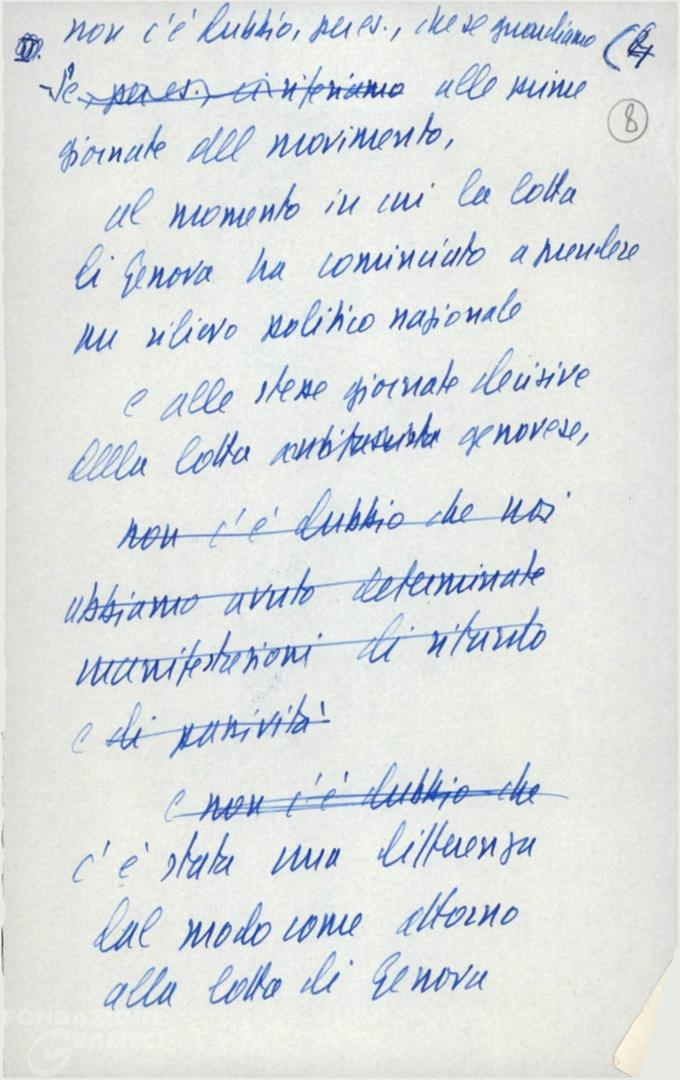 non c'è dubbio, per es., che se guardiamo (4
Se, per es., ci riferiamo alle prime
8
giornate del movimento,
al momento in cui la lotta
di Genova ha cominciato a prendere
un rilievo politico nazionale
e alle stesse giornate decisive
della lotta antifascista genovese,
non c'è dubbio che noi
abbiamo avuto determinate
manifestazioni di ritardo
e di passività
e non c'è dubbio che
c'è stata una differenza
dal modo come attorno
alla lotta di Genova
FONDAZIONE
GRAMSCI